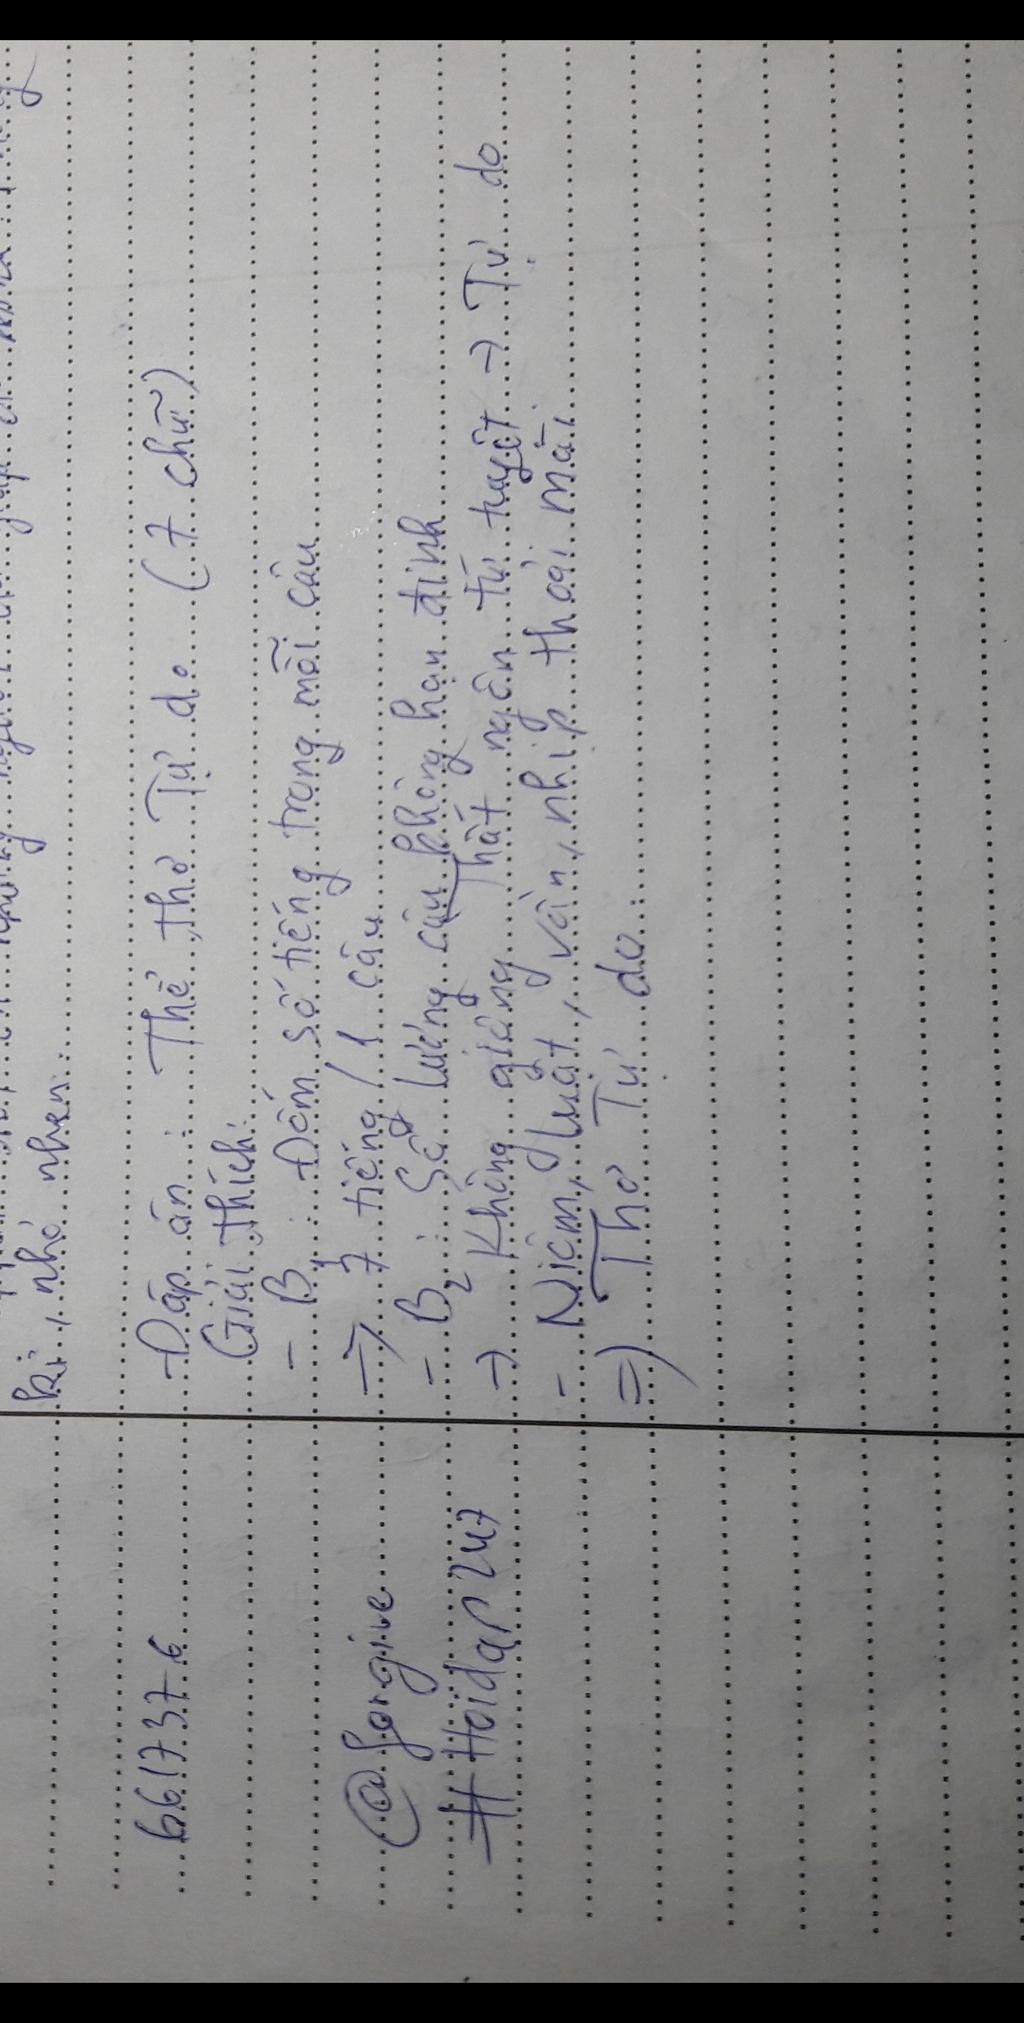 kì, nhỏ nhen.
6617376
Đáp án: Thể thơ Tự do (7 chữ)
Giải thích:
- B1: Đếm số tiếng trong mỗi câu
@forgive
→ 7 tiếng / 1 câu
#Hoidap247
- B2: Số lượng câu không hạn định
→ Không giống Thất ngôn tứ tuyệt → Tự do
- Niêm, luật, vần, nhịp thoải mái.
=) Thơ Tự do.